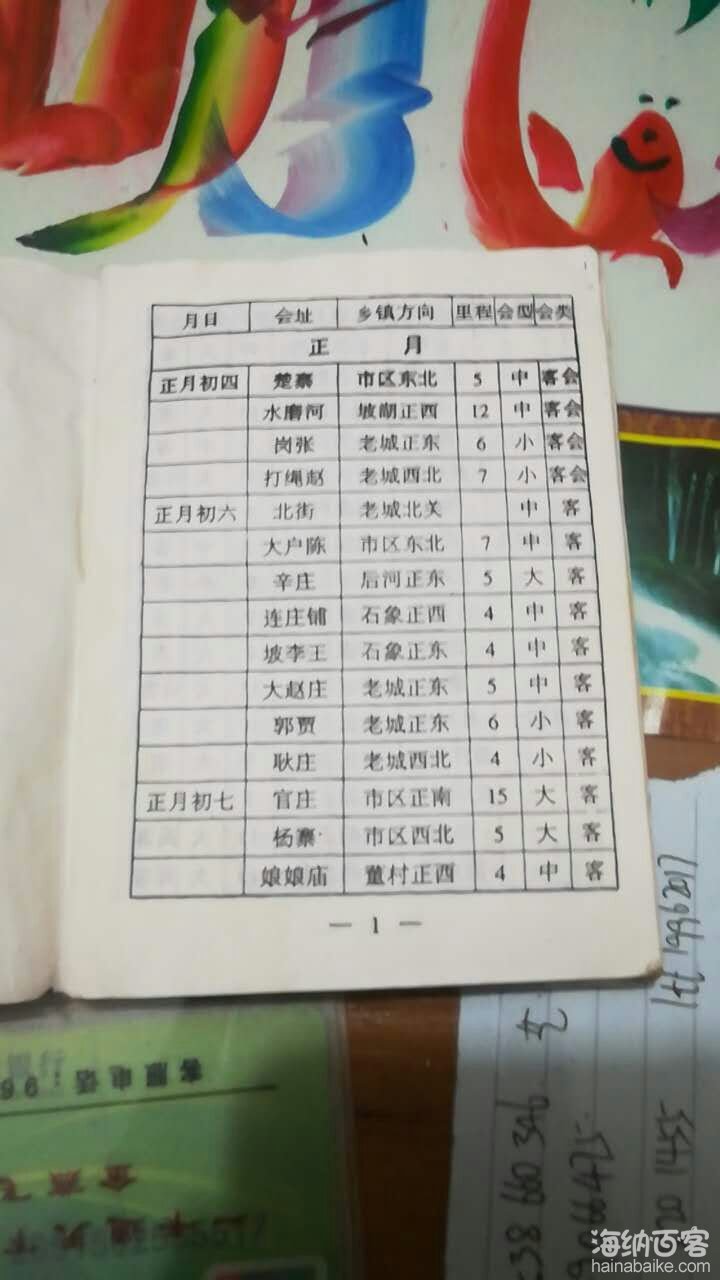 月日 会址 乡镇方向 里程 会型 会类
正 月
正月初四 楚寨 市区东北 5 中 客会
水磨河 坡胡正西 12 中 客会
岗张 老城正东 6 小 客会
打绳赵 老城西北 7 小 客会
正月初六 北街 老城北关 中 客
大户陈 市区东北 7 中 客
辛庄 后河正东 5 大 客
连庄铺 石象正西 4 中 客
坡李王 石象正东 4 中 客
大赵庄 老城正东 5 中 客
郭贾 老城正东 6 小 客
耿庄 老城西北 4 小 客
正月初七 官庄 市区正南 15 大 客
杨寨 市区西北 5 大 客
娘娘庙 董村正西 4 中 客
— 1 —
客服电话：96
海纳百客
hainabaike.com